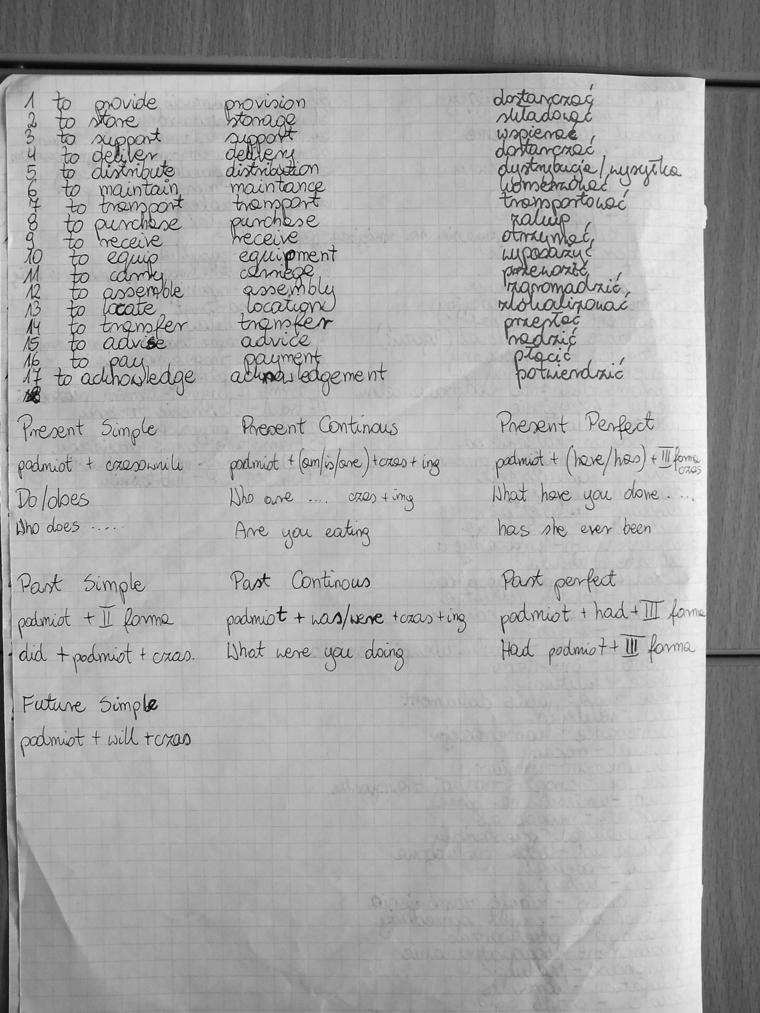 1 to provide provision dostarczać
2 to store storage składować
3 to support support wspierać
4 to deliver delivery dostarczać
5 to distribute distribution dystrybucja/wysyłka
6 to maintain maintance konserwować
7 to transport transport transportować
8 to purchase purchase zakup
9 to receive receive otrzymać
10 to equip equipment wyposażyć
11 to carry carriege przewozić
12 to assemble assembly zgromadzić
13 to locate location zlokalizować
14 to transfer transfer przesłać
15 to advise advice radzić
16 to pay payment płacić
17 to acknowledge acknowledgement potwierdzić
18
Present Simple Present Continous Present Perfect
podmiot + czasownik podmiot + (am/is/are) + czas + ing podmiot + (have/has) + III forma czas
Do/does Who are .... czas + ing What have you done ....
Who does ..... Are you eating has she ever been
Past Simple Past Continous Past perfect
podmiot + II forma podmiot + was/were + czas + ing podmiot + had + III forma
did + podmiot + czas. What were you doing Had podmiot + III forma
Future Simple
podmiot + will + czas